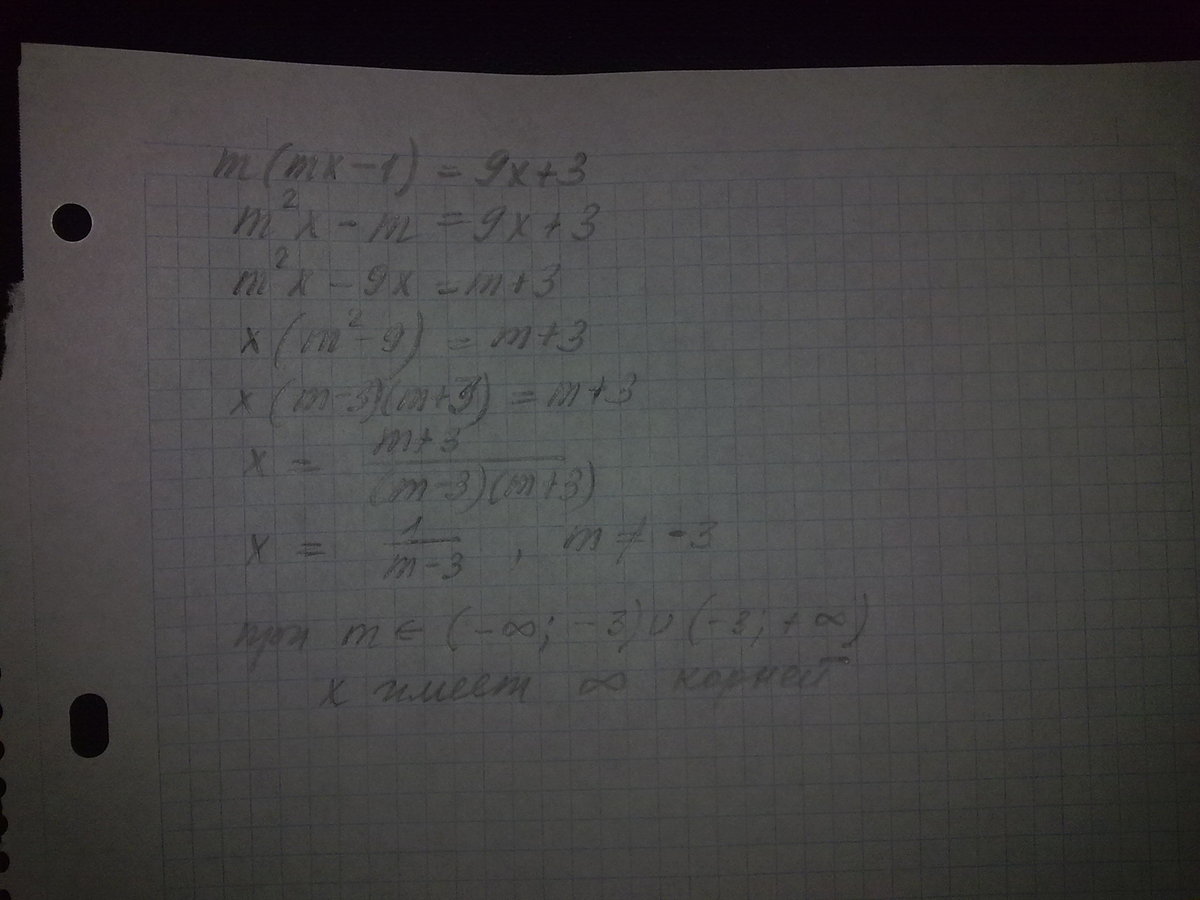 m(mx-1) = 9x+3
m²x - m = 9x+3
m²x - 9x = m+3
x(m²-9) = m+3
x(m-3)(m+3) = m+3
x = \frac{m+3}{(m-3)(m+3)}
x = \frac{1}{m-3} , m ≠ -3
при m ∈ (-∞; -3) ∪ (-3; +∞)
x имеет ∞ корней